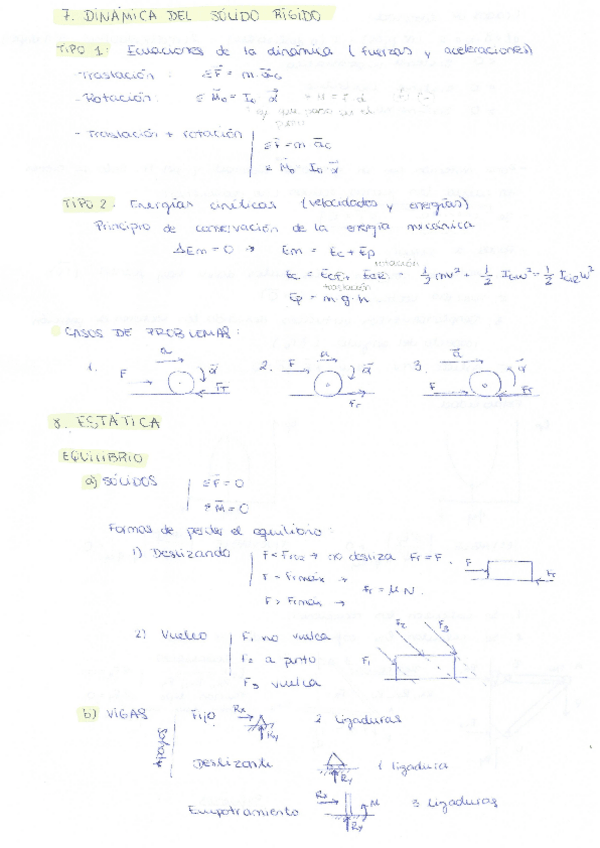 7. DINÁMICA DEL SÓLIDO RÍGIDO
TIPO 1: Ecuaciones de la dinámica (fuerzas y aceleraciones)
- Traslación: ΣF⃗ = m·a⃗G
- Rotación: ΣM⃗o = Io α⃗
eje que pasa por el
- Traslación + rotación | ΣF⃗ = m a⃗G
ΣM⃗o = Io·α⃗
TIPO 2. Energías cinéticas (velocidades y energías)
Principio de conservación de la energía mecánica
ΔEm = 0 → Em = Ec + Ep
rotación
Ec = EcT + EcR = 1/2 mv² + 1/2 IGω² = 1/2 ICIRω²
traslación
Ep = m g·h
CASOS DE PROBLEMAS:
1. F a α⃗ Fr
2. F a α⃗ Fr
3. F a⃗ α⃗ Fr
8. ESTÁTICA
EQUILIBRIO
a) SÓLIDOS | ΣF⃗ = 0
ΣM⃗ = 0
Formas de perder el equilibrio:
1) Deslizando | F < Frmáx → no desliza Fr = F. F Fr
F = Frmáx → Fr = μN.
F > Frmáx →
2) Vuelco | F1 no vuelca F1 F2 F3
F2 a punto
F3 vuelca
b) VIGAS Fijo Rx Ry 2 ligaduras
Deslizante Ry 1 ligadura
Empotramiento Rx Ry M 3 ligaduras